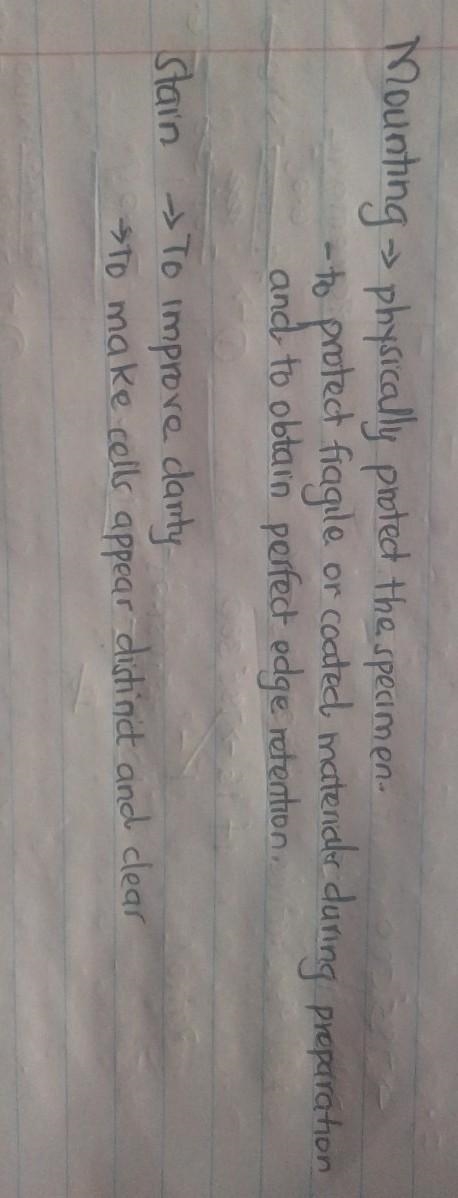 Mounting → physically protect the specimen.
- to protect fragile or coated materials during preparation
and to obtain perfect edge retention.
Stain → To improve clarity
→ To make cells appear distinct and clear